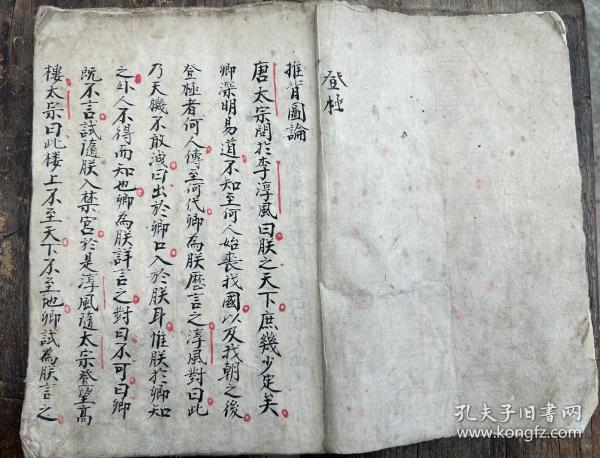 登極
推背圖論
唐太宗問於李淳風曰朕之天下庶幾少定矣
卿深明易道不知至何人始喪我國以及我朝之後
登極者何人傳至何代卿為朕歷言之淳風對曰此
乃天機不敢洩曰出於卿口入於朕耳惟朕於卿知
之外人不得而知也卿為朕詳言之對曰不可曰卿
既不言試隨朕入禁宮於是淳風隨太宗登望高
樓太宗曰此楼上不至天下不至地卿試為朕言之
孔夫子旧书网
www.kongfz.com